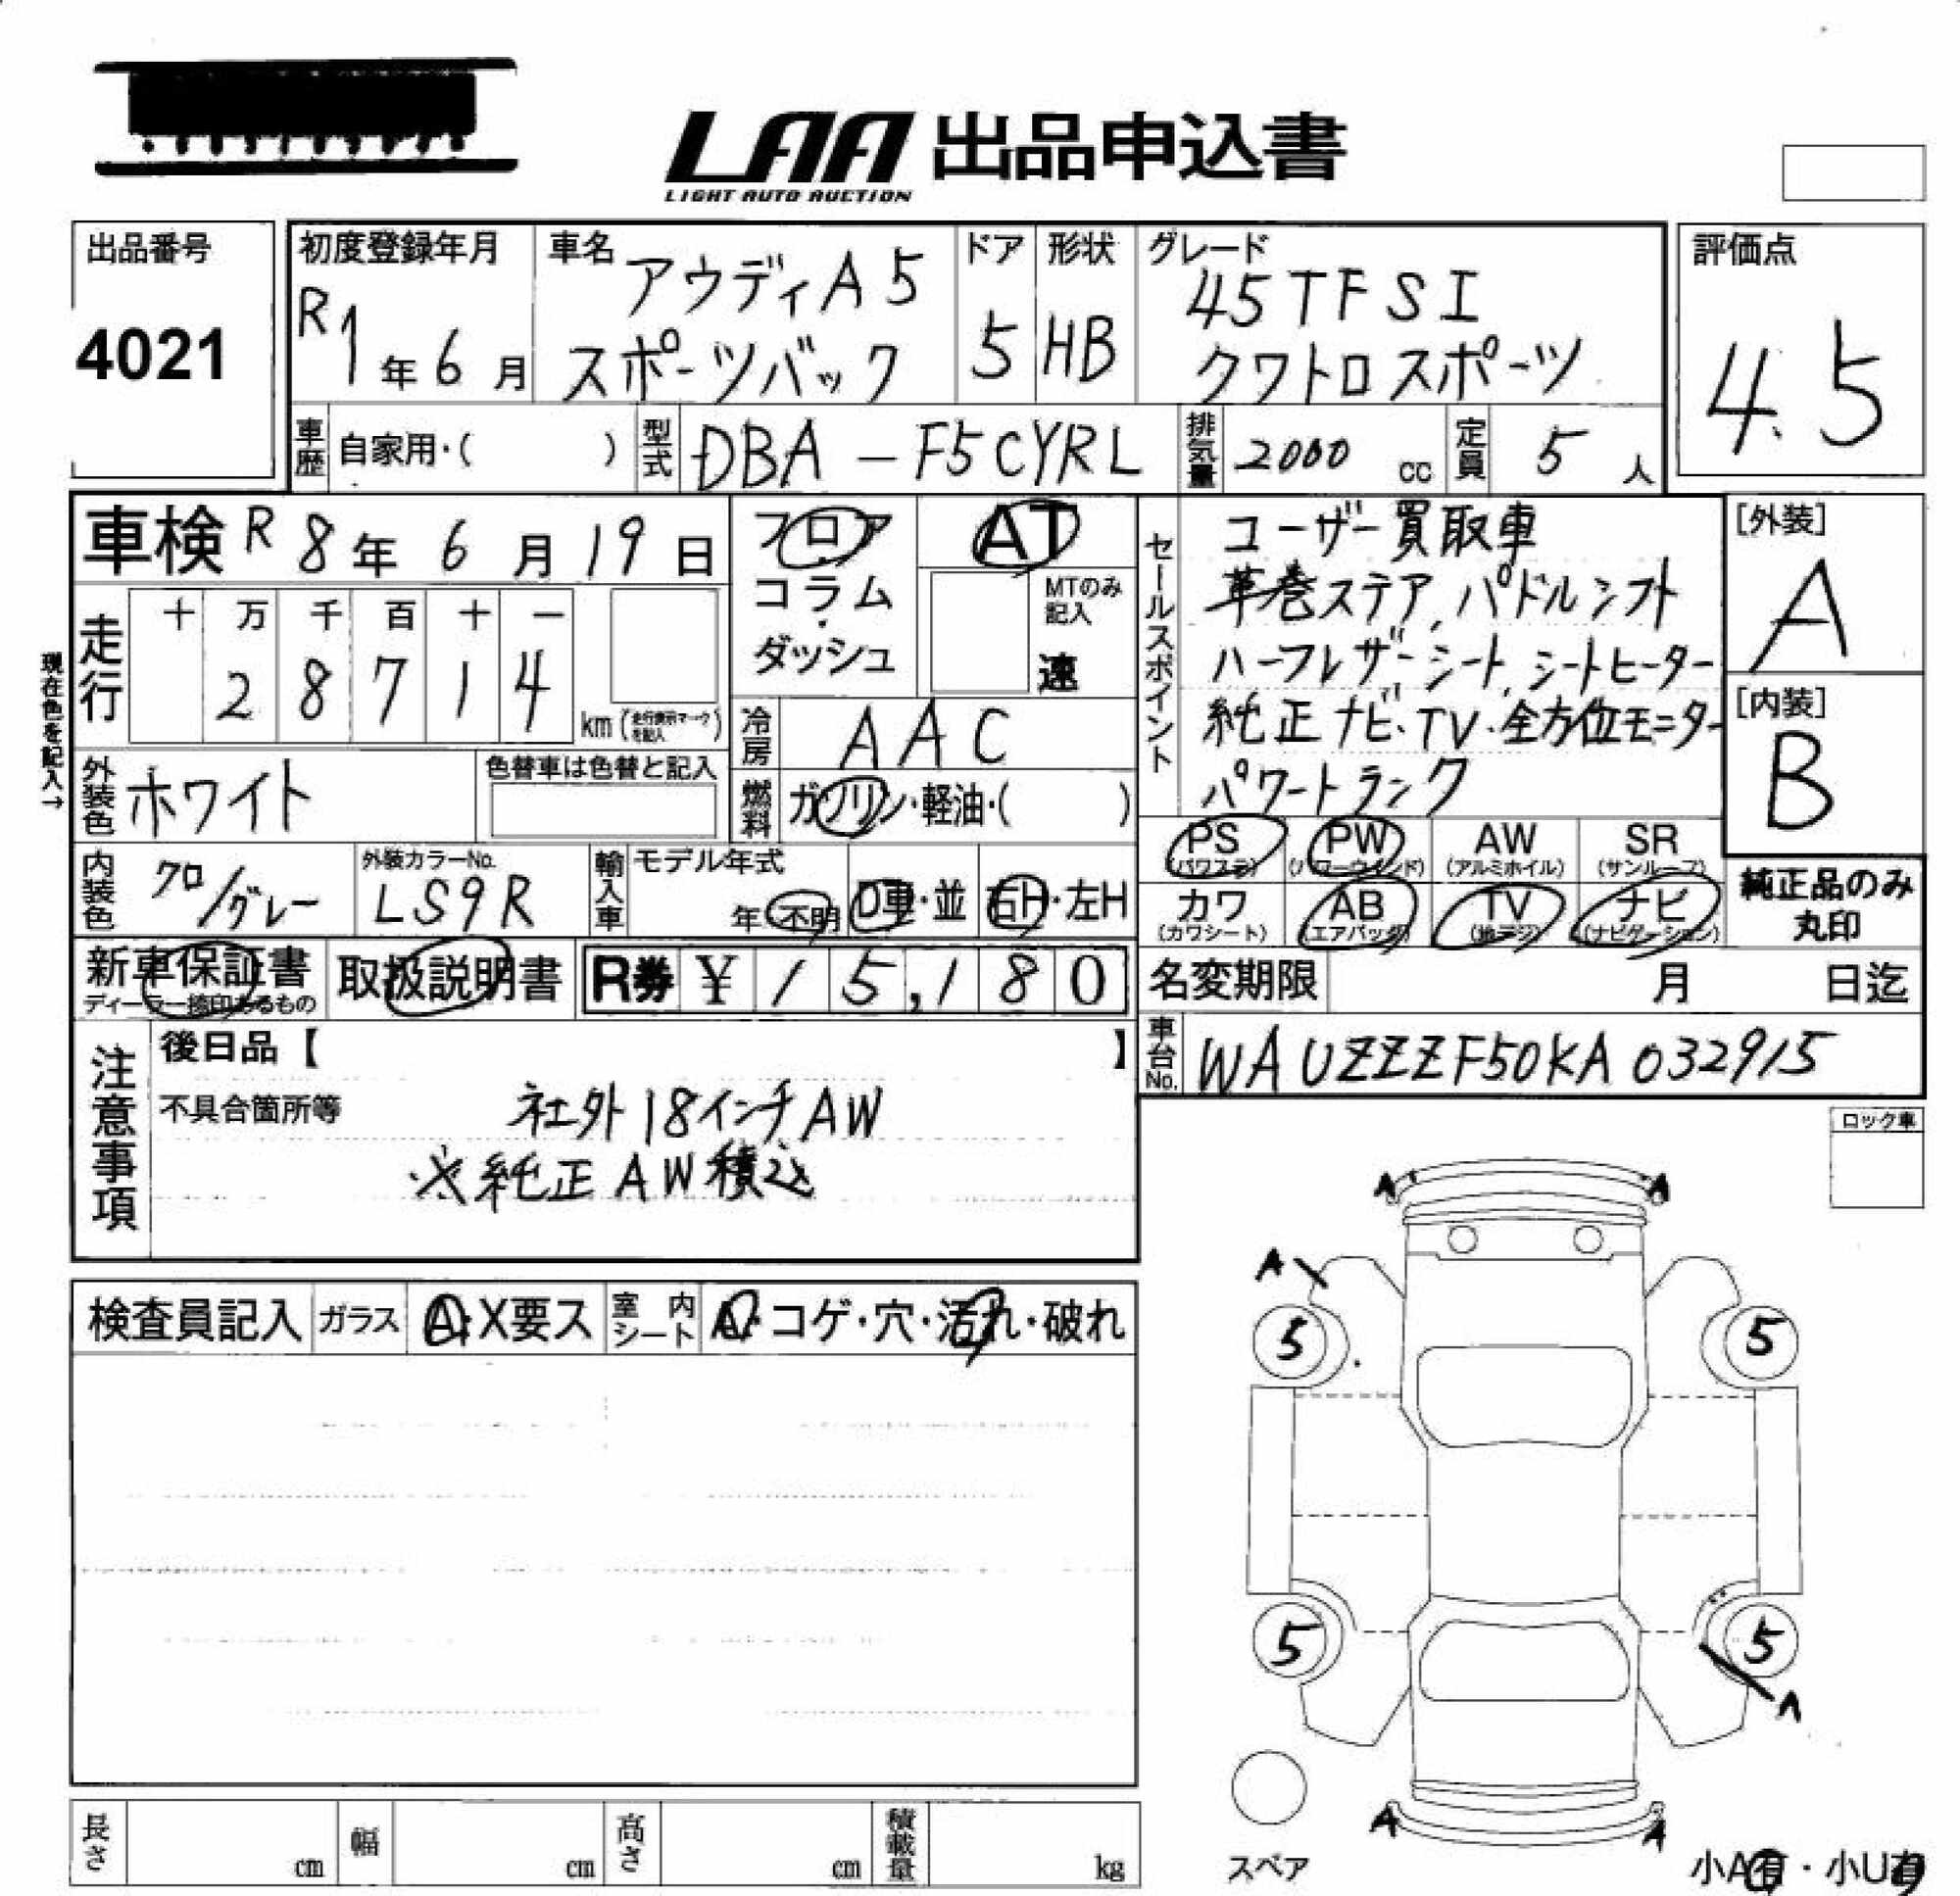 LAA 出品申込書
LIGHT AUTO AUCTION
出品番号
4021
初度登録年月
R1年6月
車名
アウディA5
スポーツバック
ドア
5
形状
HB
グレード
45TFSI
クワトロスポーツ
評価点
4.5
車歴 自家用・( )
型式 DBA-F5CYRL
排気量 2000 cc
定員 5 人
車検 R8年6月19日
フロア
コラム
ダッシュ
AT
MTのみ記入
速
セールスポイント
ユーザー買取車
革巻ステア, パドルシフト
ハーフレザーシート, シートヒーター
純正ナビ・TV・全方位モニター
パワートランク
[外装]
A
[内装]
B
現在色を記入→
走行
十 万 千 百 十 一
2 8 7 1 4
km (走行表示マークを記入)
冷房 AAC
外装色 ホワイト
色替車は色替と記入
燃料 ガソリン・軽油・( )
PS (パワステ)
PW (パワーウインド)
AW (アルミホイル)
SR (サンルーフ)
カワ (カワシート)
AB (エアバッグ)
TV (地デジ)
ナビ (ナビゲーション)
純正品のみ
丸印
内装色 クロ/グレー
外装カラーNo.
LS9R
輸入車
モデル年式
年・不明
D車・並
右H・左H
新車保証書
ディーラー捺印あるもの
取扱説明書
R券 ¥15,180
名変期限 月 日迄
車台No. WAUZZZF50KA032915
注意事項
後日品【 】
不具合箇所等
社外18インチAW
※純正AW積込
ロック車
検査員記入
ガラス A・X要ス
室内シート A・コゲ・穴・汚れ・破れ
A A
A
5 5
5 5
A
A A
スペア
小A有・小U有
長さ cm
幅 cm
高さ cm
積載量 kg